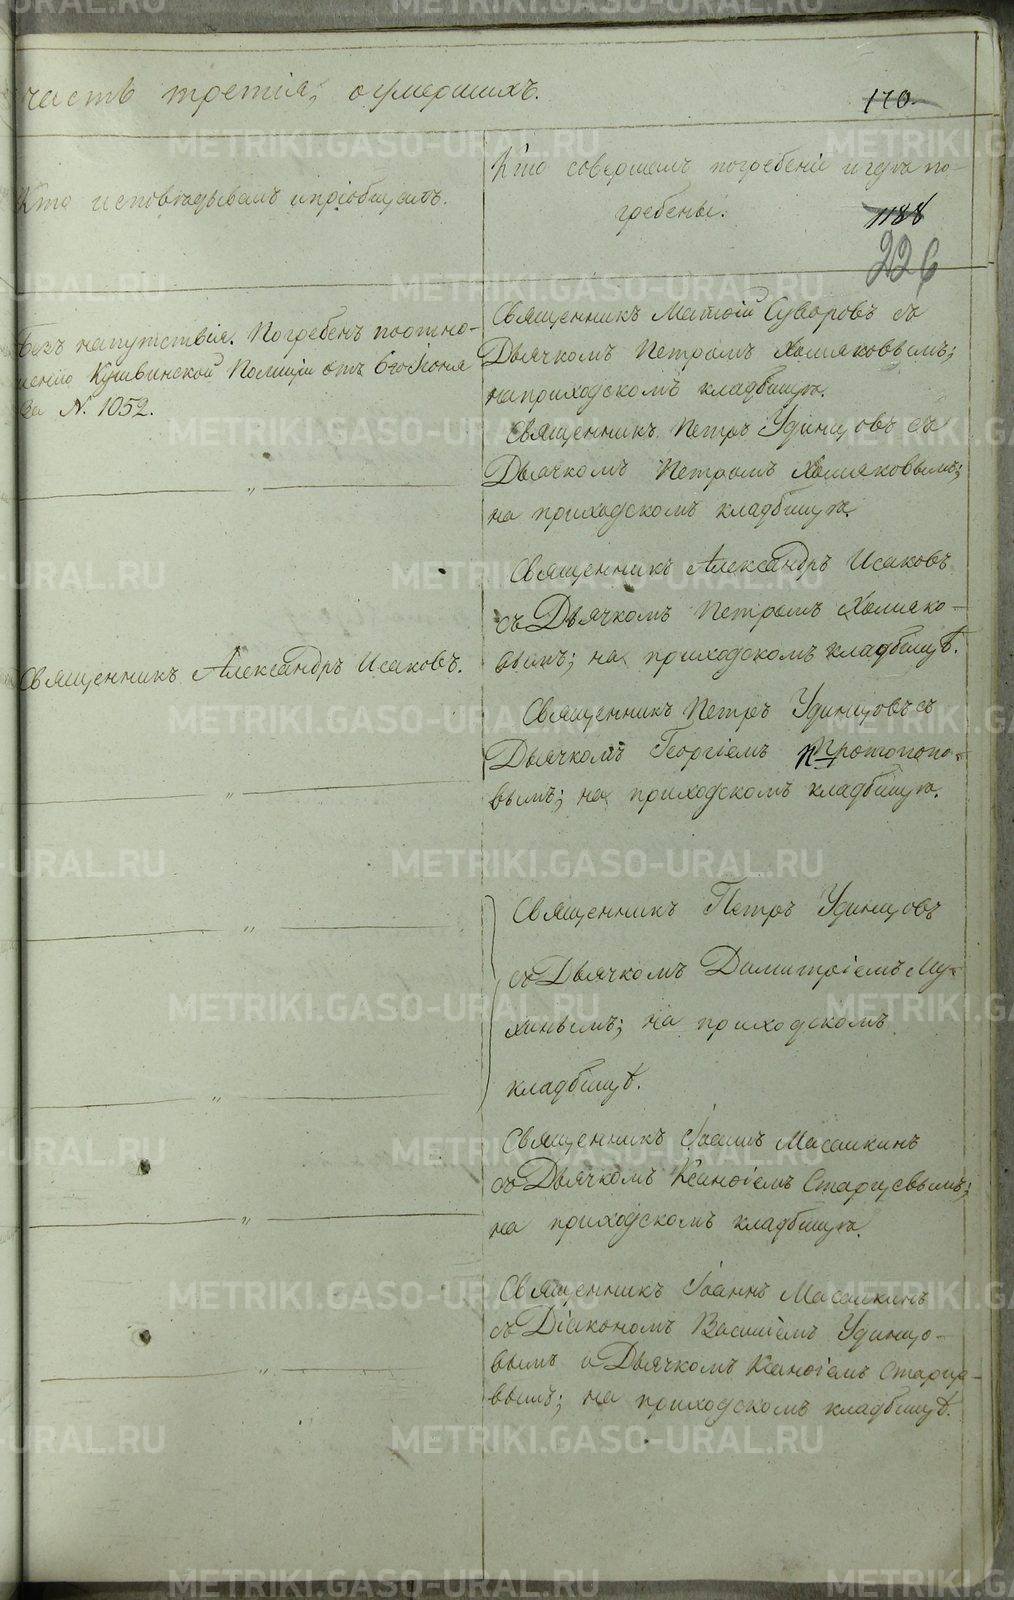 часть третія, о умершихъ.
170.
Кто исповѣдывалъ и пріобщалъ.
Кто совершалъ погребеніе и гдѣ по-
гребены.
1188
226
Безъ напутствія. Погребенъ по отно-
шенію Кушвинской Полиціи отъ 6го Іюня
за №. 1052.
Священникъ Матѳій Суворовъ съ
Дьячкомъ Петромъ Хомяковымъ;
на приходскомъ кладбищѣ.
Священникъ Петръ Удинцовъ съ
Дьячкомъ Петромъ Хомяковымъ;
на приходскомъ кладбищѣ.
"
Священникъ Александръ Исаковъ.
Священникъ Александръ Исаковъ
съ Дьячкомъ Петромъ Хомяко-
вымъ; на приходскомъ кладбищѣ.
Священникъ Петръ Удинцовъ съ
Дьячкомъ Георгіемъ Протопопо-
вымъ; на приходскомъ кладбищѣ.
"
"
Священникъ Петръ Удинцовъ
съ Дьячкомъ Димитріемъ Му-
хинымъ; на приходскомъ
кладбищѣ.
"
Священникъ Іоаннъ Масалкинъ
съ Дьячкомъ Ксанѳіемъ Старцевымъ;
на приходскомъ кладбищѣ.
"
Священникъ Іоаннъ Масалкинъ
съ Діакономъ Василіемъ Удинцо-
вымъ и Дьячкомъ Ксанѳіемъ Старце-
вымъ; на приходскомъ кладбищѣ.
"
METRIKI.GASO-URAL.RU